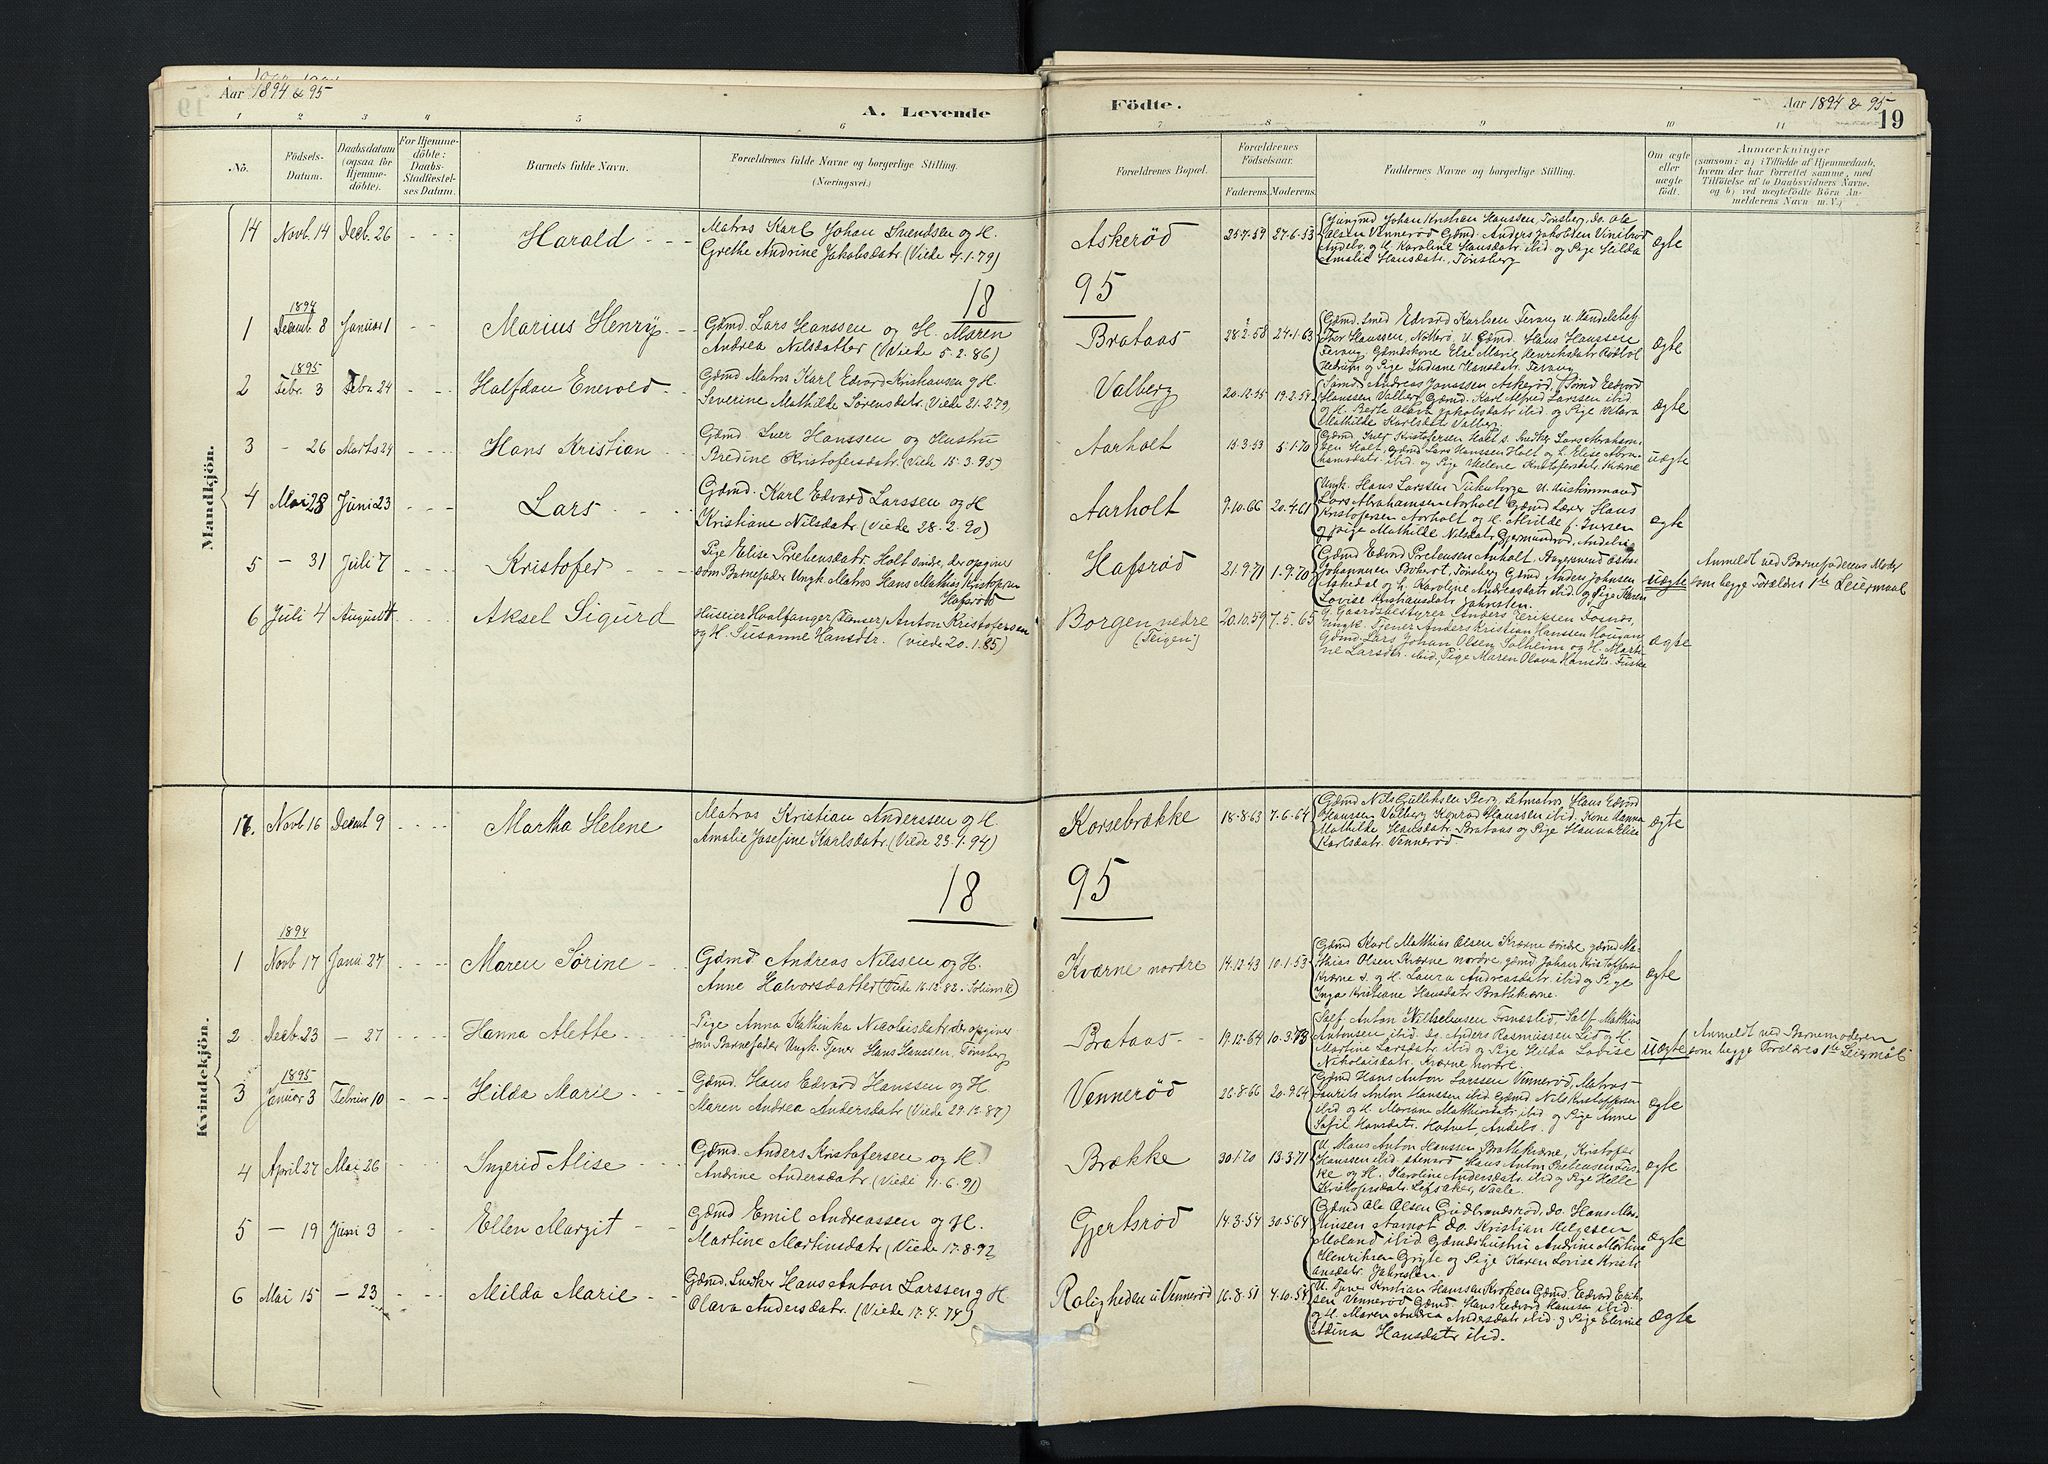 Aar 1894 & 95
A. Levende
Födte.
Aar 1894 & 95
19
1 2 3 4 5 6 7 8 9 10 11
No.
Födsels-Datum.
Daabsdatum (ogsaa for Hjemme-döbte).
For Hjemme-döbte: Daabs-Stadfæstel-ses Datum.
Barnets fulde Navn.
Forældrenes fulde Navne og borgerlige Stilling.
(Næringsvei.)
Forældrenes Bopæl.
Forældrenes Födselsaar.
Faderens. Moderens.
Faddernes Navne og borgerlige Stilling.
Om ægte eller uægte födt.
Anmærkninger
(saasom: a) i Tilfælde af Hjemmedaab,
hvem der har forrettet samme, med
Tilföielse af to Daabsvidners Navne,
og b) ved uægtefödte Börn An-
melderens Navn m. V.)
Mandkjön.
14 Novb. 14 Decb. 26 Harald
Matros Karl Johan Svendsen og H.
Grethe Andrine Jakobsdatr. (Viede 4.1.79)
Askerød 25-7-59 27-6-53
Johan Kristian Hanssen, Tønsberg, do. Ole
Olsen Vennerød Gdmd. Anders Jakobsen
Andebo og H. Karoline Hansdatr. ibid og Pige Hilda
Amalie Hansdatr. Tønsberg
ægte
18 95
1894
1 Decemb 8 Januar 1 Marius Henry
Gdmd. Lars Hanssen og H. Maren
Andrea Nilsdatter (Viede 5.2.86)
Brataas 28-2-58 24-1-63
Gdmd. Smed Edvard Karlsen Tevang U. Handelsbetj.
Thor Hanssen, Nøtterø U. Gdmd. Hans Hanssen
Tevang Gdmdskone Else Marie Henriksdatr.
Hedrum og Pige Indiane Hansdatr. Tevang
ægte
1895
2 Febr. 3 Febr 24 Halfdan Enevold
Gdmd Matros Karl Edvard Kristiansen og H.
Severine Mathilde Sørensdatr. (Viede 21.2.79)
Valberg 20.12.55 19.2.54
Andreas Jonassen Askerød, Edvard
Hanssen Valberg Gdmd. Karl Alfred Larssen ibid
og H. Berte Olava Jakobsdatr ibid og Pige Klara
Mathilde Karlsdatr. Valberg.
ægte
3 - 26 Marts 24 Hans Kristian
Gdmd. Iver Hanssen og Hustru
Bredine Kristofersdatr. (Viede 15.3.95)
Aarholt 15.3.53 5.1.70
Gdmd. Iver Kristofersen Holt s. Snedker Lars Abraham-
sen Holt, Gdmd Lars Hanssen Holt og H. Elise Abra-
hamsdatr. ibid og Pige Helene Kristofersdatr. Kværne
uægte
4 Mai 28 Juni 23 Lars
Gdmd. Karl Edvard Larssen og H
Kristiane Nilsdatr (Viede 28.2.90)
Aarholt 9.10.66 20.4.61
Ungk. Hans Larssen
Lars Abrahamsen Aarholt Gdmd Lars Hans
Kristofersen Aarholt og H. Alvilde f. Iversen
og Pige Mathilde Nilsdatr. Gjermundrød, Andebu
ægte
5 - 31 Juli 7 Kristofer
Pige Elise Prebensdatr. Holt søndre, der opgiver
som Barnefader Ungk. Matros Hans Mathias Kristofersen
Hafsrød
Hafsrød 21.9.71 1.9.70
Gdmd Edvard Prebensen Aarholt
Johannesen Tønsberg Gdmd Anders Johnsen
og H. Karoline Andreasdatr ibid og Pige Karen
Lovise Kristiansdatr. Jahresten.
uægte
Anmeldt ved Barnefaderens Moder
som begge Forældres 1ste Leiermaal
6 Juli 4 August 4 Aksel Sigurd
Huseier Hvalfanger (Flenser) Anton Kristofersen
og H. Susanne Hansdtr. (Viede 20.1.85)
Borgen nedre
(Skigen)
20.10.59 7.5.65
G. Gaardsbestyrer Anders Eriksen Fosnæs,
Ungk. Tjener Anders Kristian Hanssen Hougan,
Gdmd. Lars Johan Olsen Solheim og H. Marti-
ne Larsdtr. ibid, Pige Maren Olava Hansdtr. Fuske
ægte
Kvindekjön.
17. Novb 16 Decemb 9 Martha Helene
Matros Kristian Anderssen og H
Amalie Josefine Karlsdatr. (Viede 23.1.94)
Korsebrække 18-8-63 7-6-64
Gdmd Nils Gulliksen Berg, Letmatros Hans Edvard
Hanssen Valberg Konrad Hanssen ibid. Kone Hanna
Mathilde Hansdatr. Brataas og Pige Hanna Elise
Karlsdatr. Vennerød.
ægte
18 95
1894
1 Novb 17 Janu 27 Maren Sørine
Gdmd Andreas Nilssen og H.
Anne Halvorsdatter (Viede 16.12.82. Solum K)
Kværne nordre 14-12-43 10-1-53
Gdmd Karl Matthias Olsen Kværne søndre Gdmd Ma-
thias Olsen Kværne nordre, Gdmd Johan Kristoffersen
Kværne s. og H. Laura Andreasdatr ibid og Pige
Inga Kristiane Hansdatr Bratkværne.
ægte
2 Decb. 23 - 27 Hanna Alette
Pige Anna Kathinka Nicolaisdatr. der opgiver
som Barnefader Ungk. Tjener Hans Hanssen, Tønsberg
Brataas 19.12.64 10.3.73
Anton Fossnæslid, Mathias
Antonsen ibid. do Anders Rasmussen Lid og H.
Martine Larsdatr. ibid og Pige Hilda Lovise
Nikolaisdatr. Kværne nordre.
uægte
Anmeldt ved Barnemoderen
som begge Forældres 1ste Leiermål
1895
3 Januar 3 Februar 10 Hilda Marie
Gdmd. Hans Edvard Hanssen og H.
Maren Andrea Andersdatr (Viede 29.12.87)
Vennerød 26-8-66 20.9.64
Gdmd Hans Anton Larssen Vennerød, Matros
Laurits Anton Hanssen ibid Gdmd Nils Kristoffersen
ibid og H. Mariane Mathisdatr ibid og Pige Anne
Sofie Hansdatr. Hotvet, Andebo.
ægte
4 April 27 Mai 26 Ingerid Alise
Gdmd. Anders Kristofersen og H.
Andrine Andersdatr. (Viede 11.6.91)
Brække 30.1.70 13.3.71
U. Hans Anton Hanssen Bratkværne, Kristofer
Hanssen ibid Hans Anton Prebensen Fus-
ke og H. Karoline Andersdatr ibid og Pige Helle
Kristofersdatr. Lefsaker, Vaale.
ægte
5 - 19 Juni 3 Ellen Margit
Gdmd Emil Andreassen og H.
Martine Martinsdatr (Viede 17.8.92
Gjertsrød 14.3.54 30.5.64
Gdmd Ole Olsen Gudbrandsrød, do. Hans Mar-
tinsen Aamot do. Kristian Helgesen
Moland ibid. Gdmdshustru Andrine Martine
Henriksen Gryte og Pige Karen Lovise Kristi-
ansdatr. Jahresten
ægte
6 Mai 15 - 23 Milda Marie
Gdmd. Snedker Hans Anton Larssen og H
Olava Andersdatr. (Viede 17.4.74)
Roligheden u/ Vennerød 16.8.51 4.10.54
U. Tjener Kristian Hanssen Gdmd Edvard Erik-
sen Vennerød Gdmd. Hans Edvard Hanssen ibid.
og H. Maren Andrea Andersdatr ibid. og Pige
Adina Hansdatr ibid.
ægte